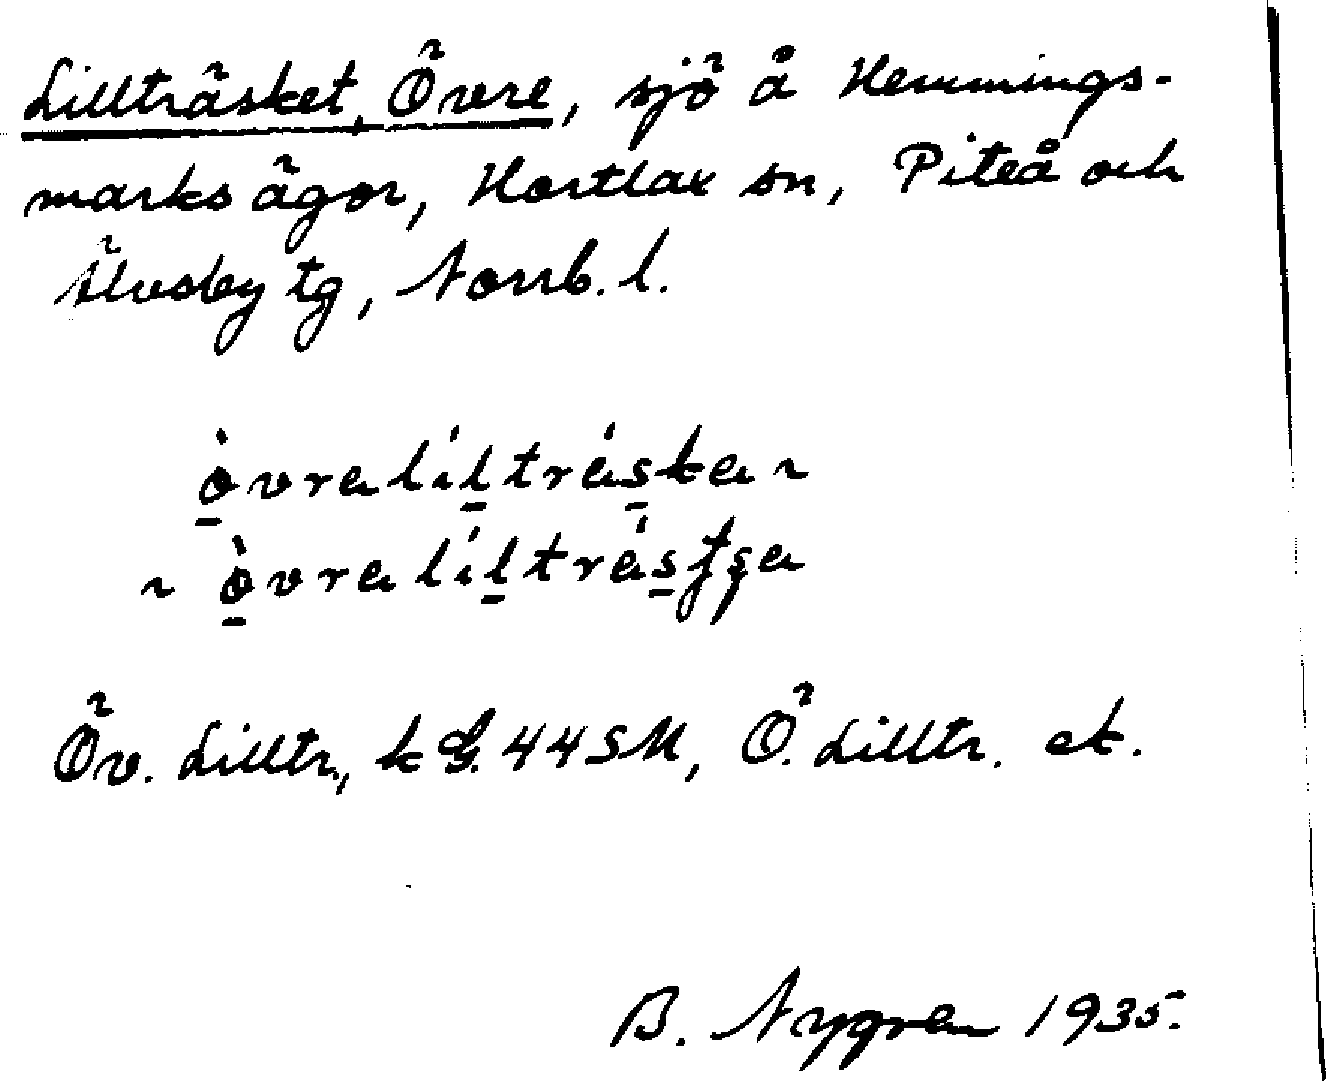 Lillträsket, Övre, sjö å Hemmings-
marks ägor, Hortlax sn, Piteå och
Älvsby tg, Norrb. l.
ò̠vra líl̠trás̠ka ~
~ ò̠vra líl̠trás̠tʂa
Öv. Lilltr., k G. 44 SM, Ö. Lilltr. ek.
B. Nygren 1935.